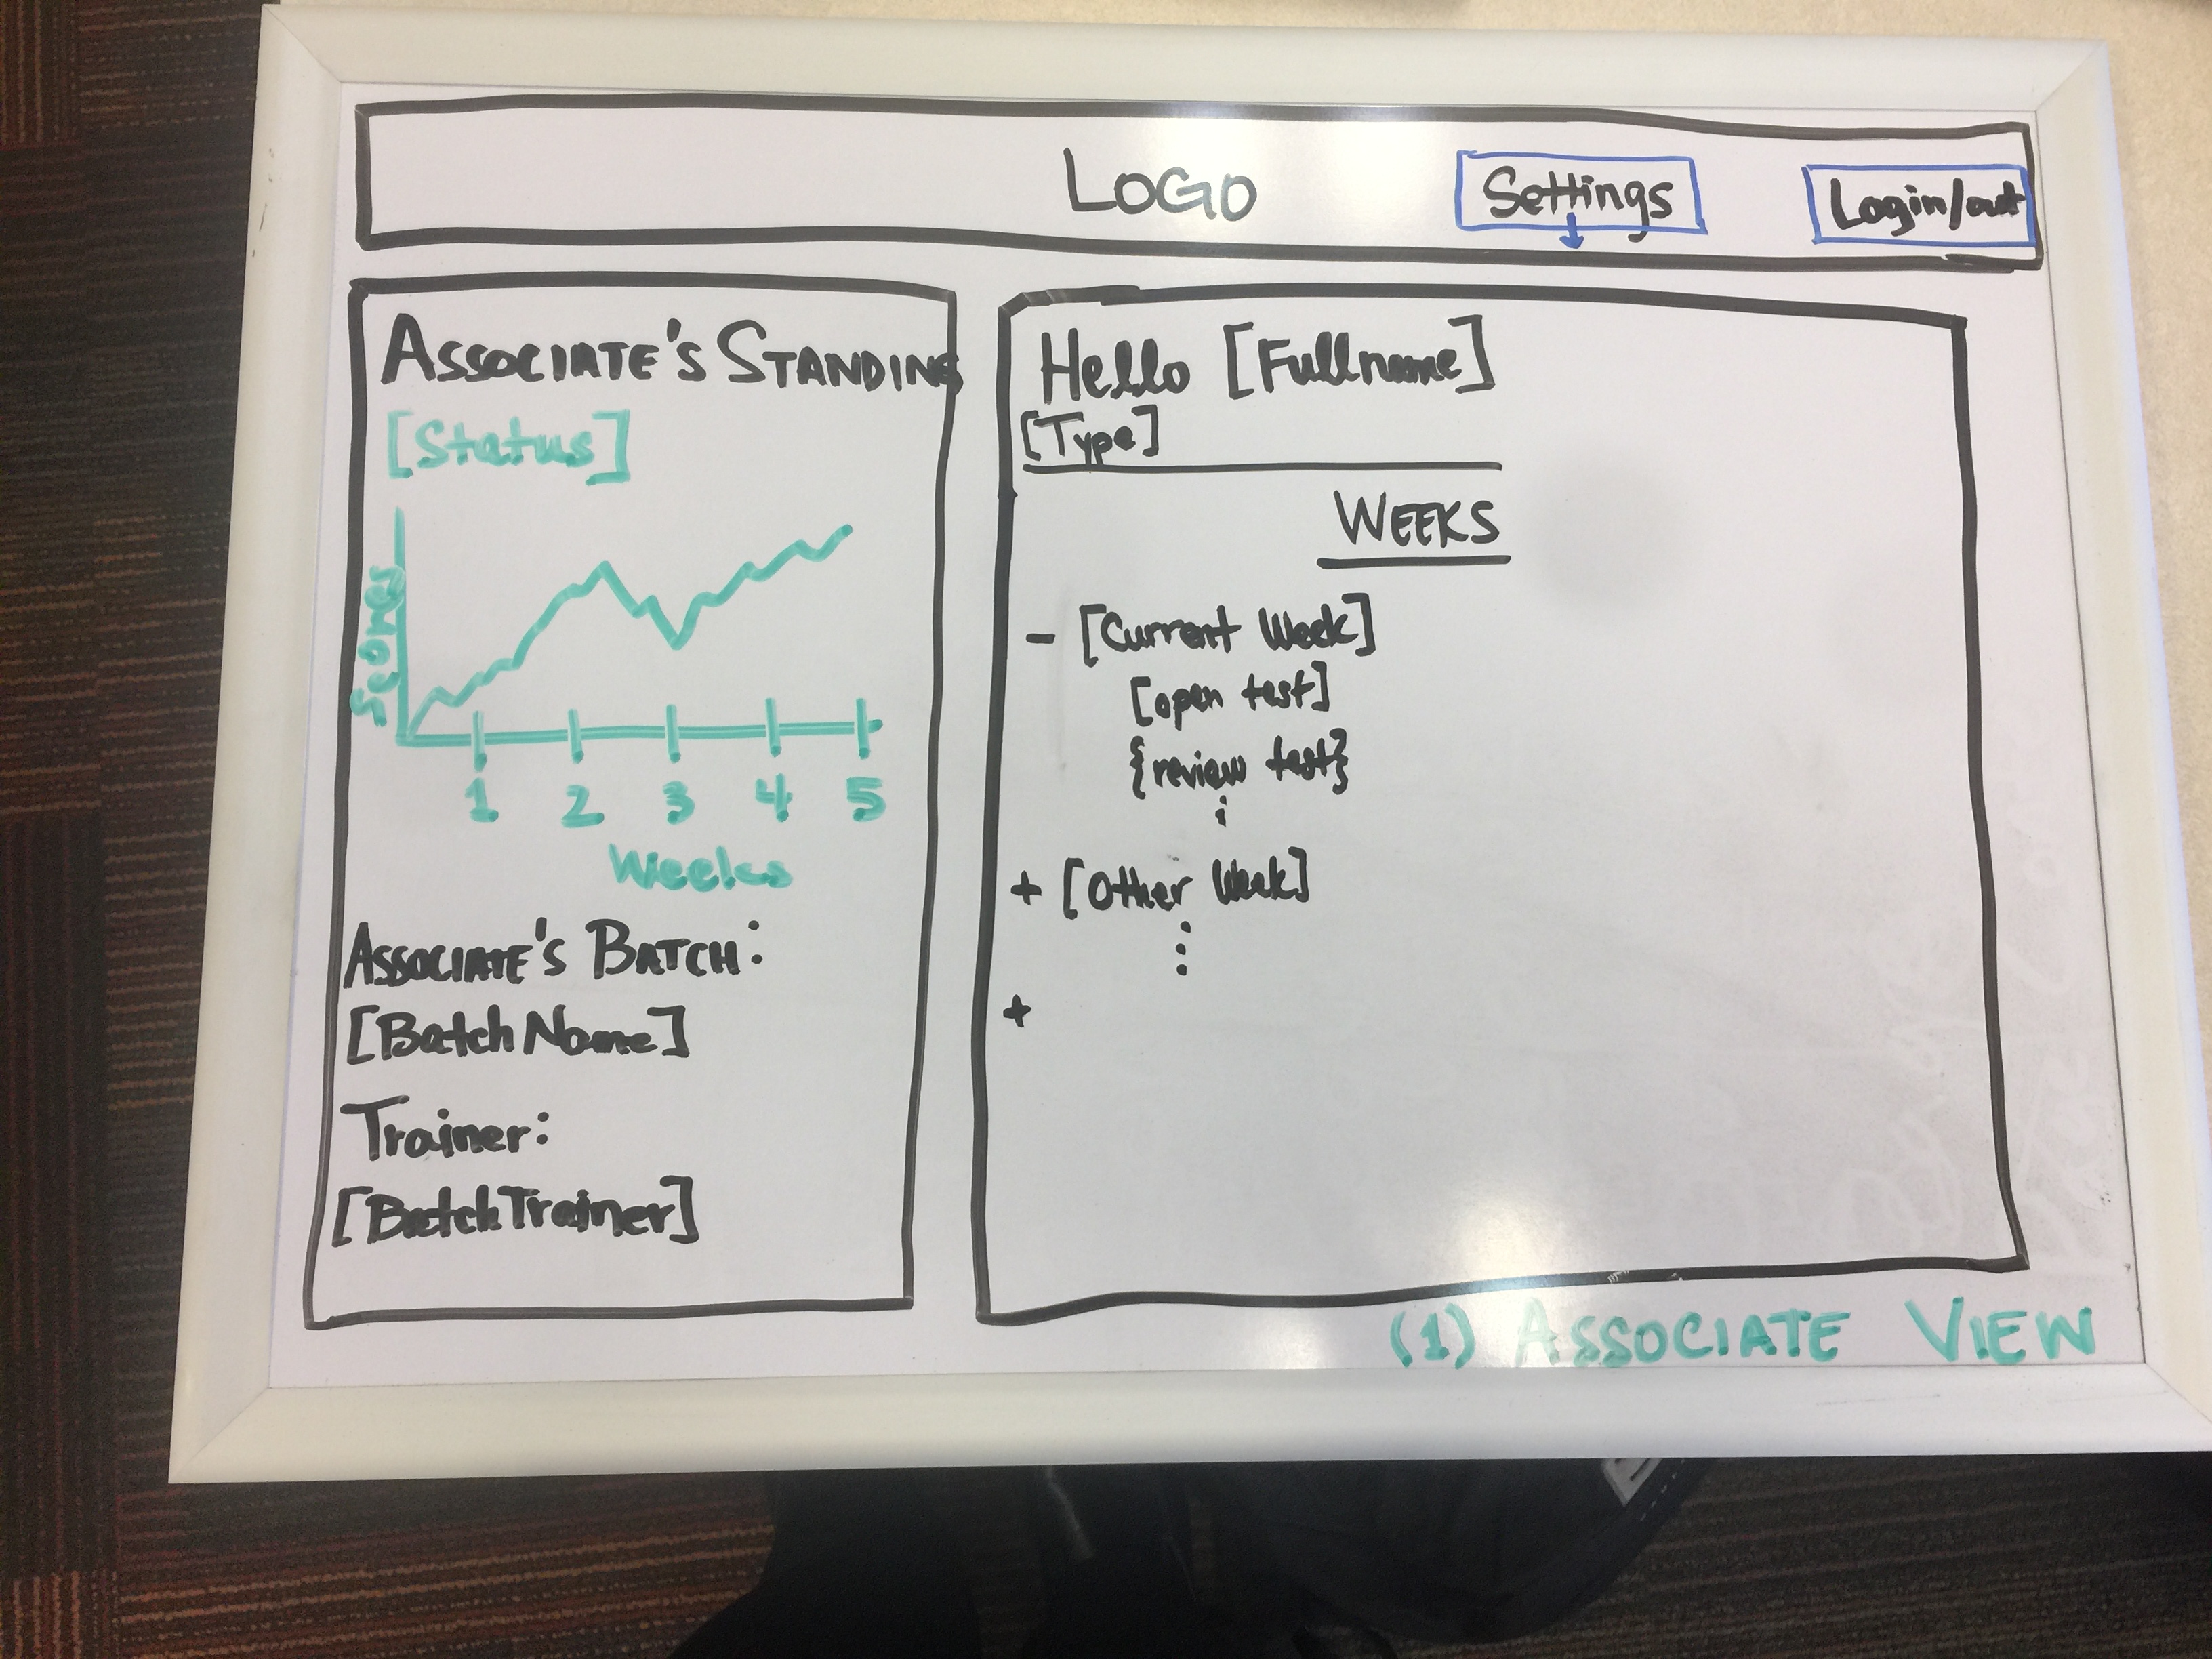 LOGO
Settings
Login/out
ASSOCIATE'S STANDING
[Status]
Scores
1 2 3 4 5
Weeks
ASSOCIATE'S BATCH:
[Batch Name]
Trainer:
[Batch Trainer]
Hello [Fullname]
[Type]
WEEKS
- [Current Week]
[open test]
{review test}
+ [Other Week]
+
(1) ASSOCIATE VIEW